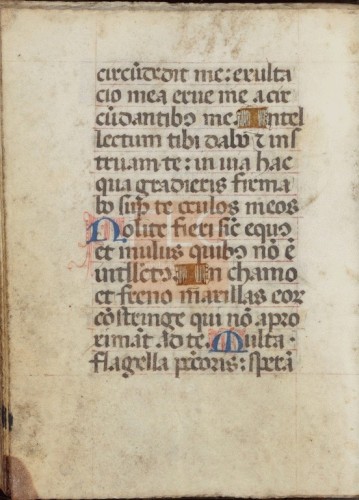 circũdedit me: exulta
cio mea erue me a cir
cũdantibꝰ me. Intel
lectum tibi dabo ⁊ ins
truam te: in uia hac
qua gradieris firma
bo suꝑ te oculos meos
Nolite fieri sic̃ equꝰ
et mulus quibꝰ nõ ẽ
intll̃ectꝰ. In chamo
et freno maxillas eor
cõstringe qui nõ apro
ximãt ad te. Multa
flagella pc̃coris: sperã